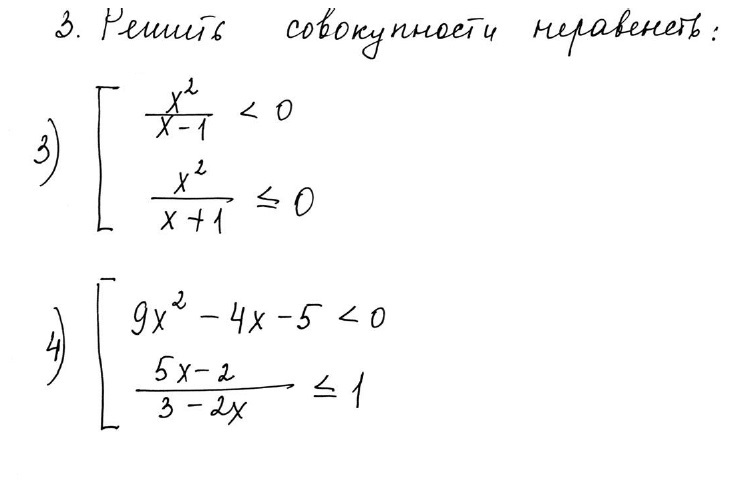 3. Решить совокупности неравенств:
3) [ x²/(x-1) < 0
x²/(x+1) ≤ 0
4) [ 9x² - 4x - 5 < 0
(5x-2)/(3-2x) ≤ 1